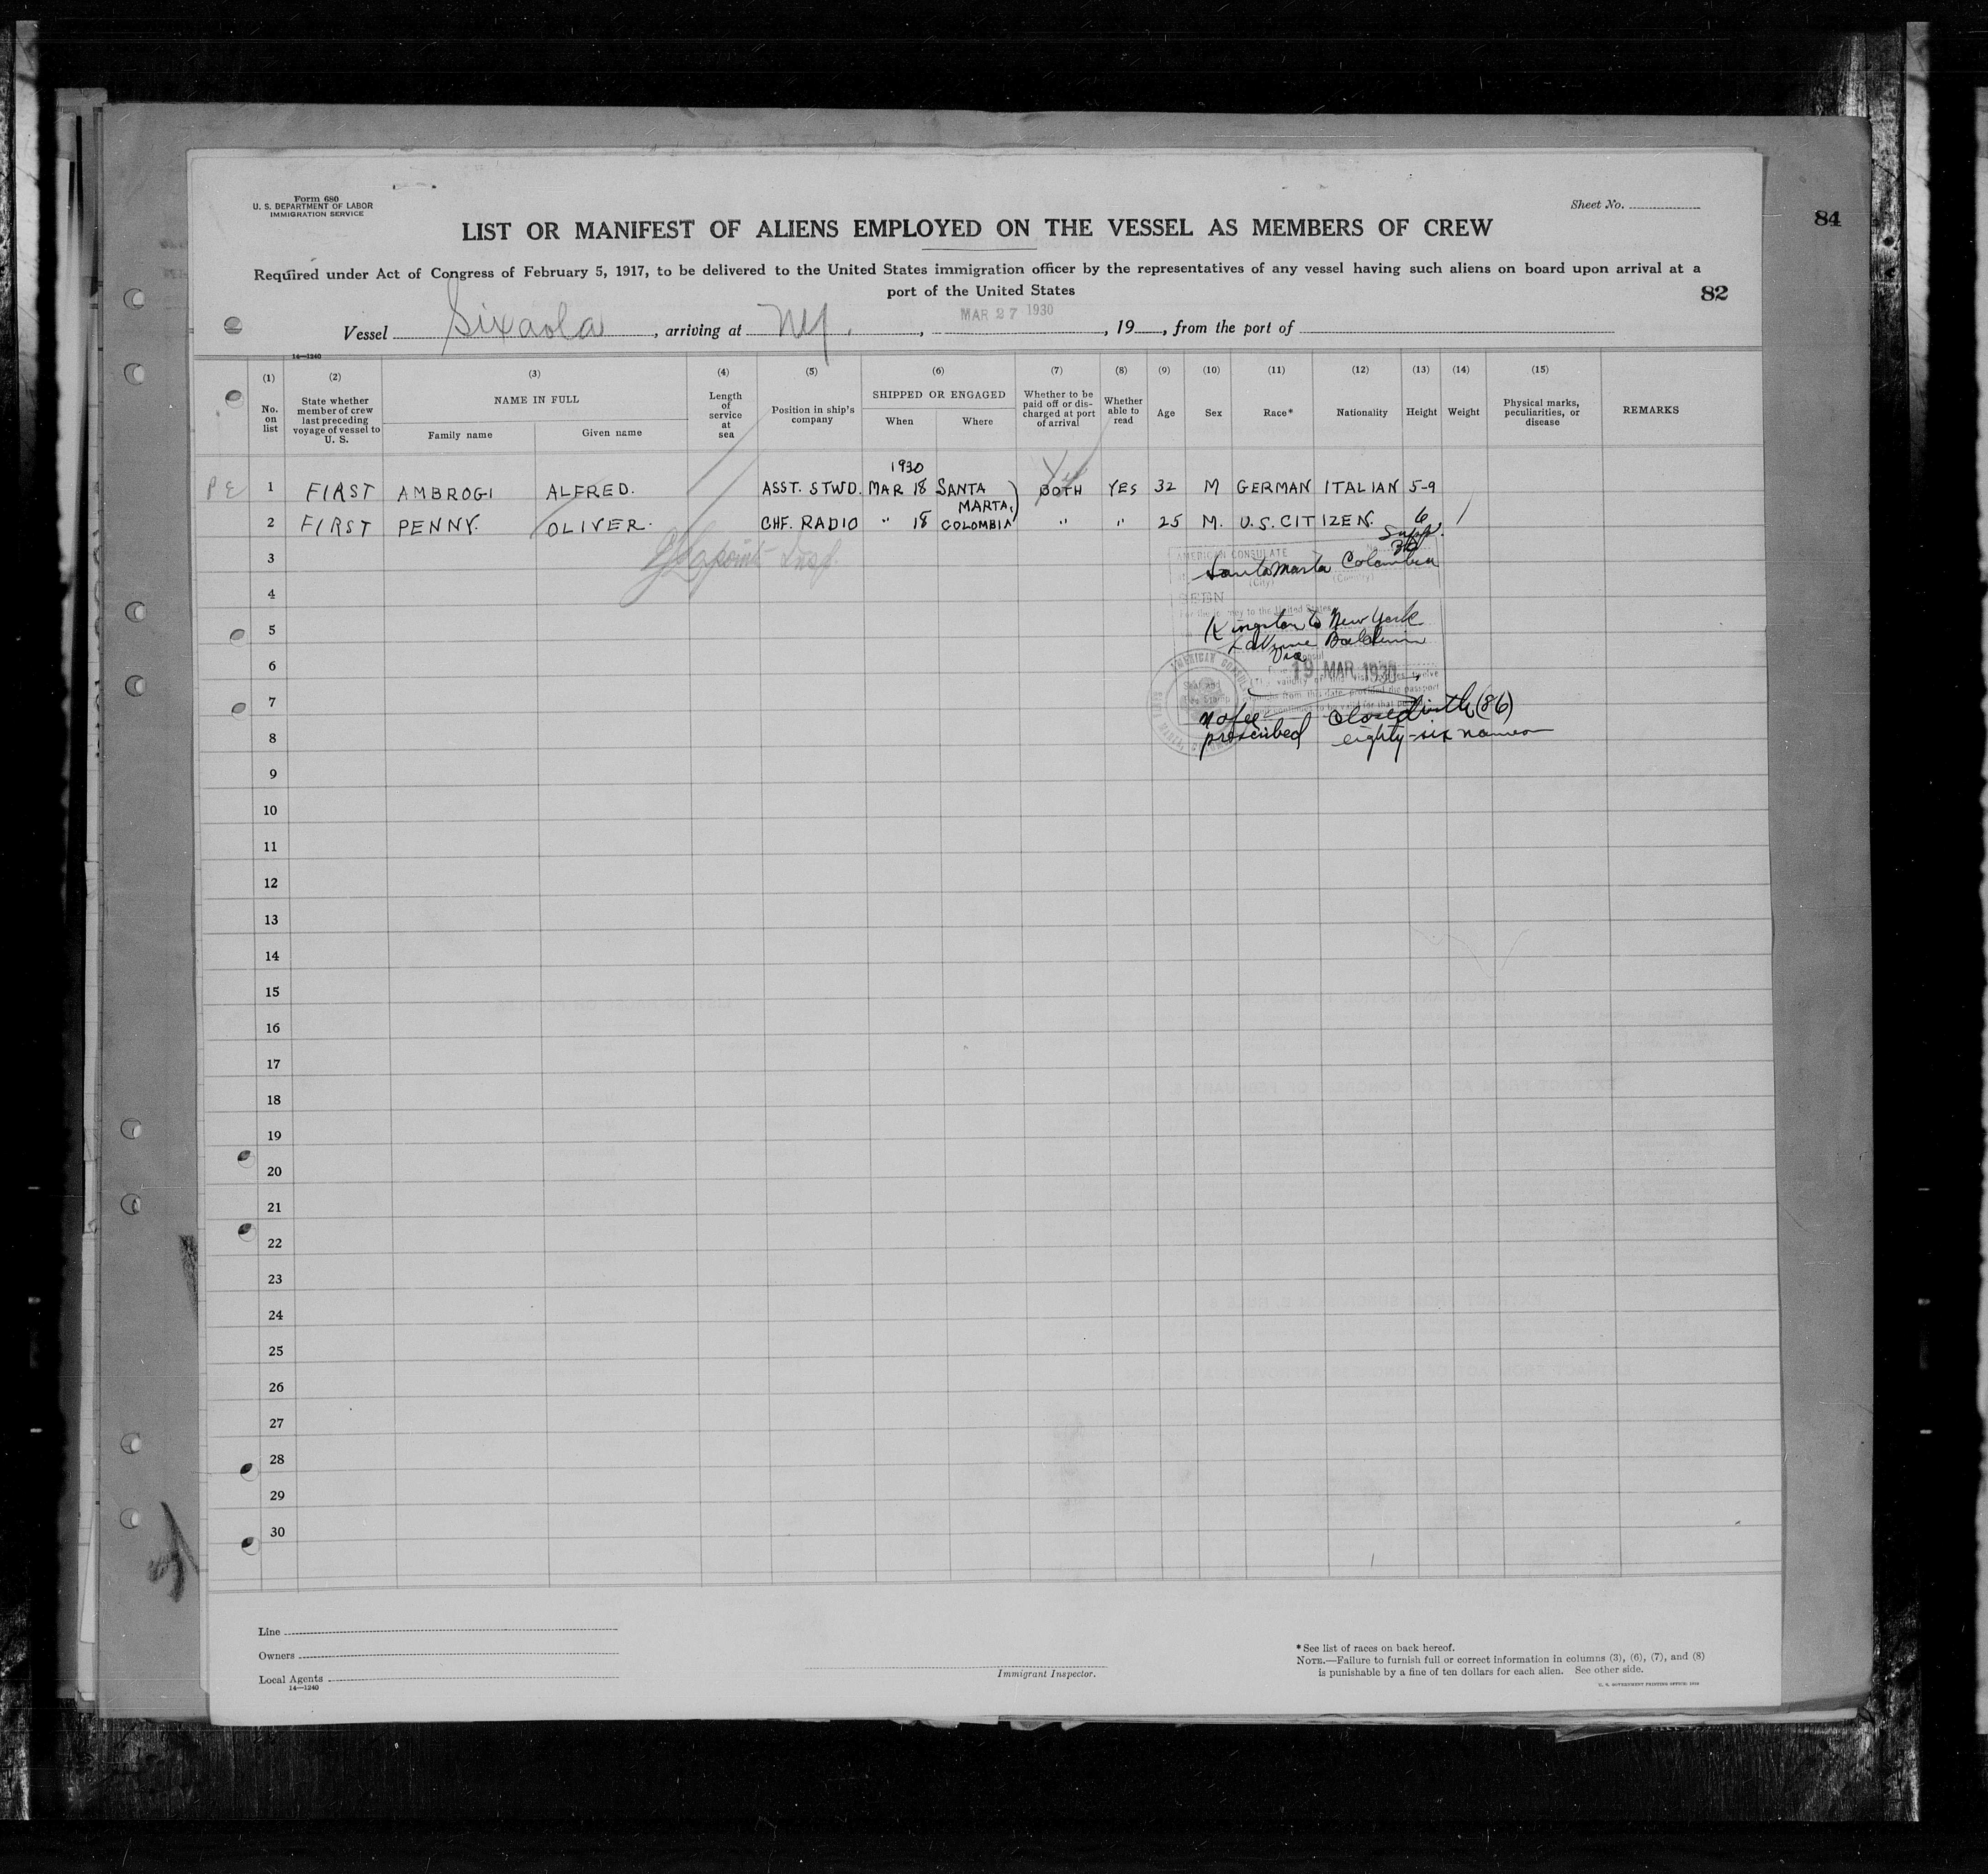 Form 680
U. S. DEPARTMENT OF LABOR
IMMIGRATION SERVICE
Sheet No.
84
LIST OR MANIFEST OF ALIENS EMPLOYED ON THE VESSEL AS MEMBERS OF CREW
Required under Act of Congress of February 5, 1917, to be delivered to the United States immigration officer by the representatives of any vessel having such aliens on board upon arrival at a
port of the United States
82
Vessel Sixaola, arriving at NY., MAR 27 1930, 19, from the port of
14—1240
(1) (2) (3) (4) (5) (6) (7) (8) (9) (10) (11) (12) (13) (14) (15)
No. on list
State whether member of crew last preceding voyage of vessel to U. S.
NAME IN FULL
Family name
Given name
Length of service at sea
Position in ship's company
SHIPPED OR ENGAGED
When
Where
Whether to be paid off or discharged at port of arrival
Whether able to read
Age
Sex
Race*
Nationality
Height
Weight
Physical marks, peculiarities, or disease
REMARKS
1930
PE 1 FIRST AMBROGI ALFRED. ASST. STWD. MAR 18 SANTA BOTH YES 32 M GERMAN ITALIAN 5-9
MARTA,
2 FIRST PENNY. OLIVER. CHF. RADIO " 18 COLOMBIA " " 25 M. U.S. CITIZEN. 6
Supp.
3
AMERICAN CONSULATE
Santa Marta Colombia
(City) (Country)
4
SEEN
For the journey to the United States
5
Kingston to New York
Baldwin
6
19 MAR 1930
AMERICAN CONSULATE
7
No fee Closed with (86)
8
prescribed eighty-six names
9
10
11
12
13
14
15
16
17
18
19
20
21
22
23
24
25
26
27
28
29
30
Line
Owners
Local Agents
14—1240
Immigrant Inspector.
*See list of races on back hereof.
NOTE.—Failure to furnish full or correct information in columns (3), (6), (7), and (8)
is punishable by a fine of ten dollars for each alien. See other side.